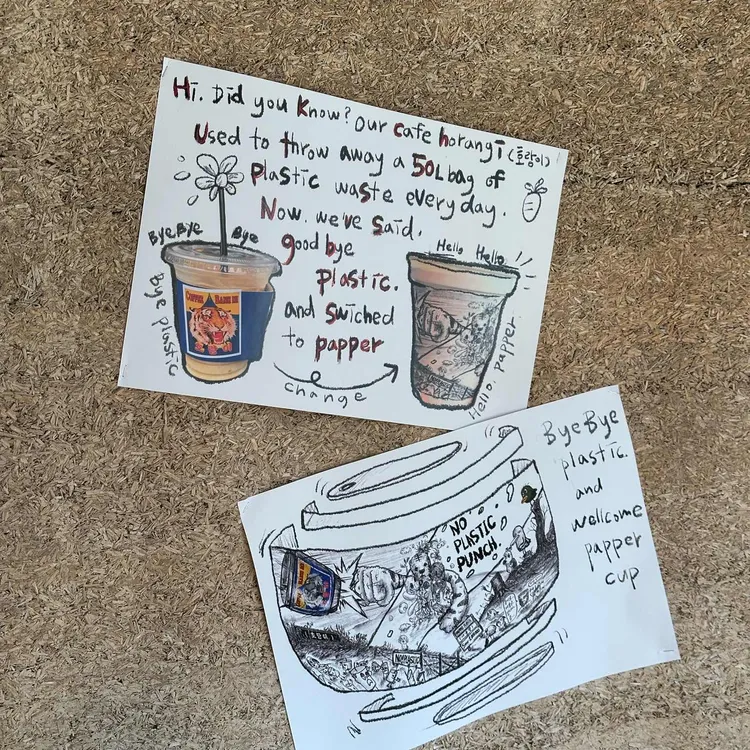 Hi. Did you Know? Our cafe horangi (호랑이)
Used to throw away a 50L bag of
plastic waste every day.
Now, we've said,
good bye
plastic.
and swiched
to papper
ByeBye Bye
Bye plastic
change
Hello Hello
Hello. papper
ByeBye
plastic.
and
wellcome
papper
cup
NO
PLASTIC
PUNCH.